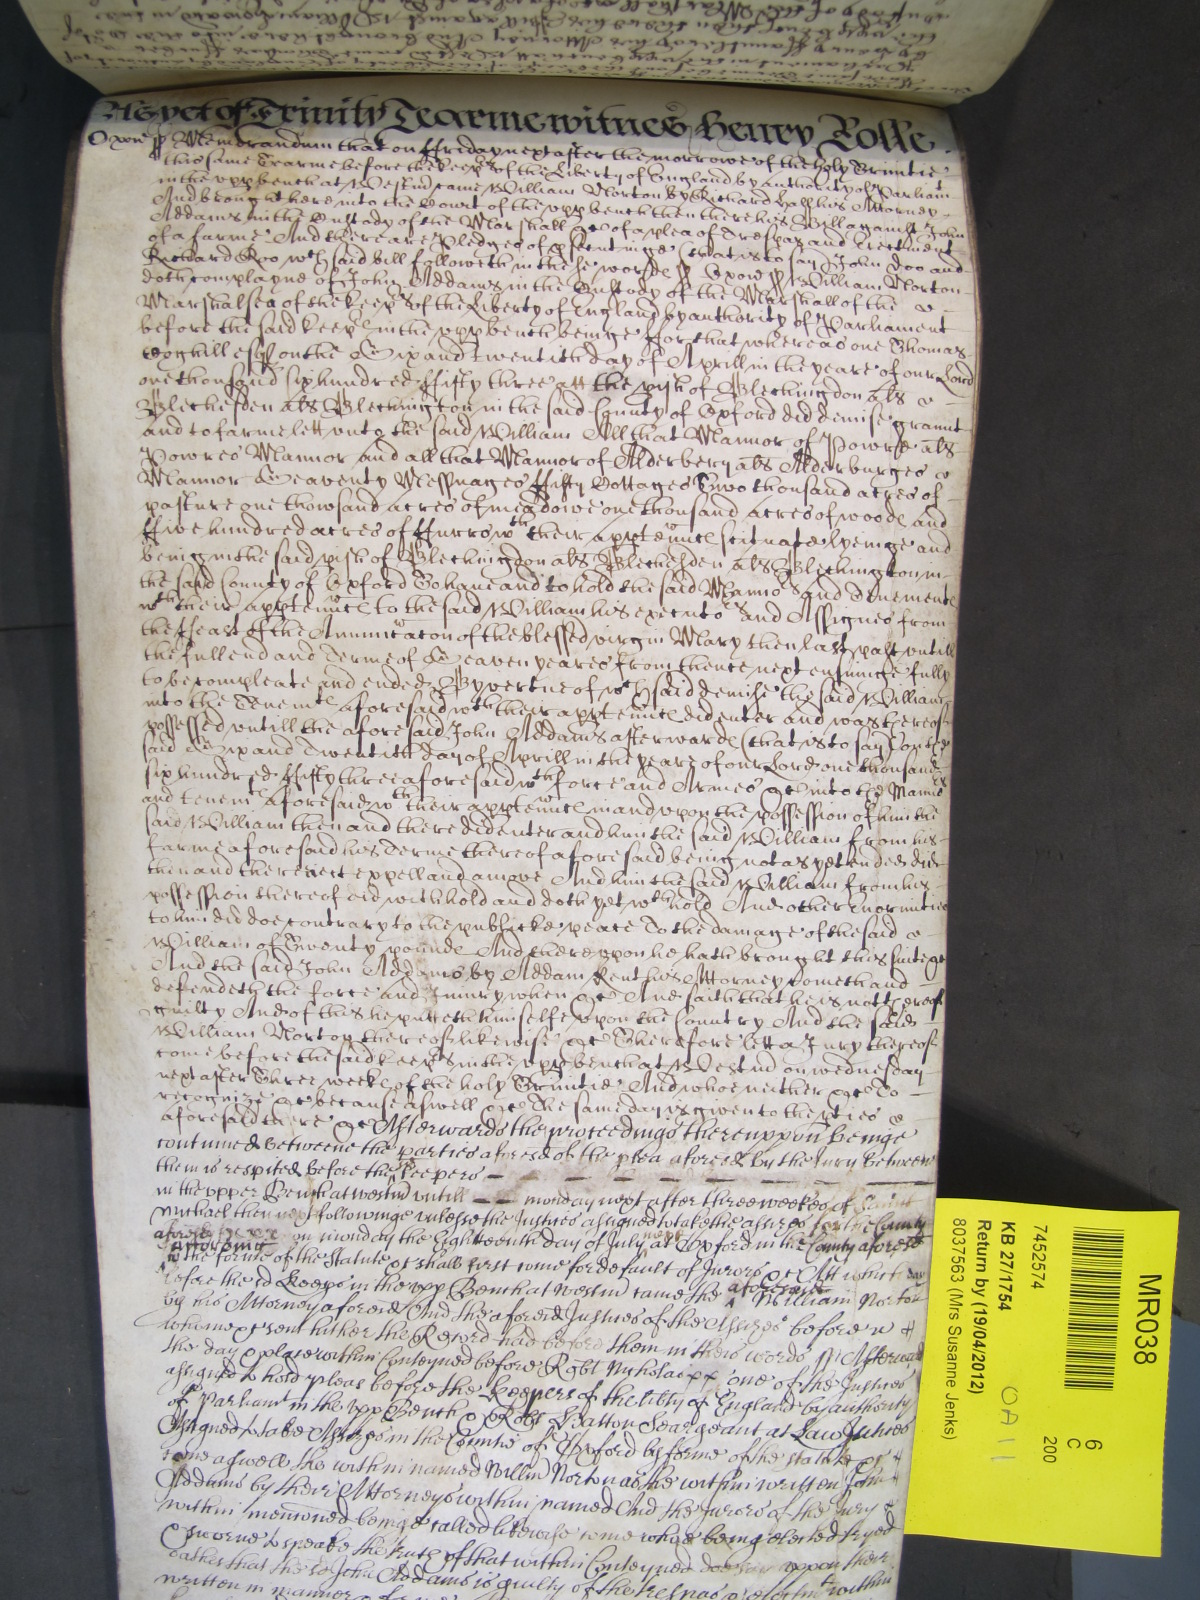 As yet of Trinity Tearme witnes Henry Rolle
Oxon ss Memorandum that on ffriday next after the morrowe of the holy Trinitie
this same Tearme before the Keeprs of the Liberty of England by authority of Parliamt
in the upp bench at Westmr came William Norton by Richard Hall his Attorney
And brought here into the Court of the upp bench then there his Bill against John
Addams in the Custody of the Marshall &c of a plea of Trespas and Eiectment
of a farme And there are Pledges of psecutinge (that is to say) John Doo and
Richard Roo wch said bill followeth in these words ss Oxon ss William Norton
doth complayne of John Addams in the Custody of the Marshall of the
Marshalsea of the Keeprs of the Liberty of England by authority of Parliament
before the said Keeprs in the upp bench beinge ffor that whereas one Thomas
Coghill esqr on the Six and twentith day of Aprill in the yeare of our Lord
one thousand six hundred ffifty three att the pish of Blechingdon als
Blechesden als Blechington in the said County of Oxford did demise graunt
and to farme lett unto the said William All that Mannor of Powre als
Powres Mannor and all that Mannor of Alderbery als Alderburges
Mannor Seaventy Messuages ffifty Cottages Two thousand acres of
pasture one thowsand acres of meadowe one thousand acres of wood and
ffive hundred acres of ffurrow wth their apptennces scituate lyeinge and
being in the said pish of Blechingdon als Blechesden als Blechington in
the said County of Oxford To have and to hold the said Mannors and Tenements
wth their apptennces to the said William his executors and Assignes from
the ffeast of the Annunciacon of the blessed virgin Mary then last past untill
the full end and Terme of Seaven yeares from thence next ensuinge fully
to be compleate and ended By vertue of wch said demise the said William
into the Tenemts aforesaid wth their apptennces did enter and was thereof
possessed untill the aforesaid John Addams afterwards (that is to say) on the
said Six and Twentith day of Aprill in the yeare of our Lord one thousand
six hundred ffifty three aforesaid wth force and Armes &c into the Mannors
and tenemts aforesaid wth their apptennces in and upon the possession of him the
said William then and there did enter and him the said William from his
farme aforesaid his Terme thereof aforesaid being not as yet ended did
then and there eiect expell and amove And him the said William from his
possession thereof did withhold and doth yet wthhold And other Enormities
to him did doe contrary to the publicke peace To the damage of the said
William of Twenty pounds And thereupon he hath brought this suite &c
And the said John Addams by Addam Kent his Attorney cometh and
defendeth the force and Iniury when &c And saith that he is nott thereof
guilty And of this he putteth himselfe upon the Country And the said
William Norton thereof likewise &c Therefore lett a Jury thereof
come before the said Keeprs in the upp bench at Westmr on wednesday
next after Three weeks of the holy Trinitie And whoe neither &c To
recognize &c because aswell &c The same day is given to the pties
aforesaid there &c Afterwards the proceedings thereuppon beinge
continued betweene the parties aforesd of the plea aforesd by the Jury betweene
them is respited before the Keepers
in the upper Bench at westmr untill monday next after three weekes of Saint
Michael then next followinge unlesse the Justices assigned to take the assizes for the County
aforesd on munday the Eighteenth day of July next at Oxford in the County aforesd
by the forme of the Statute &c shall first come for default of Jurors &c Att which day
before the sd Keeprs in the upp Bench at westmr came the aforesaid William Norton
by his Attorney aforesd And the aforesd Justices of the Assizes before w
whome &c sent hither the Record had before them in theis words ss Afterwards
the day & place within Conteyned before Robt Nicholas one of the Justices
assigned to hold pleas before the Keepers of the libty of England by authority
of Parliamt in the upp Bench & Robt Hatton Seargeant at Law Justices
Assigned to take Assizes in the Countie of Oxford by forme of the statute &c
Come aswell the within named Willm Norton as the within written John
Addams by their Attorneys within named And the Jurors of the Jury
within mentioned beinge called likewise come whoe being elected tryed
& sworne to speake the truth of that within Conteyned doe say upon their
oathes that the sd John Addams is guilty of the trespas & eiectmt within
written in manner
MR038
6
C
200
7452574
KB 271/754
Return by (19/04/2012)
8037563 (Mrs Susanne Jenks)
OA11